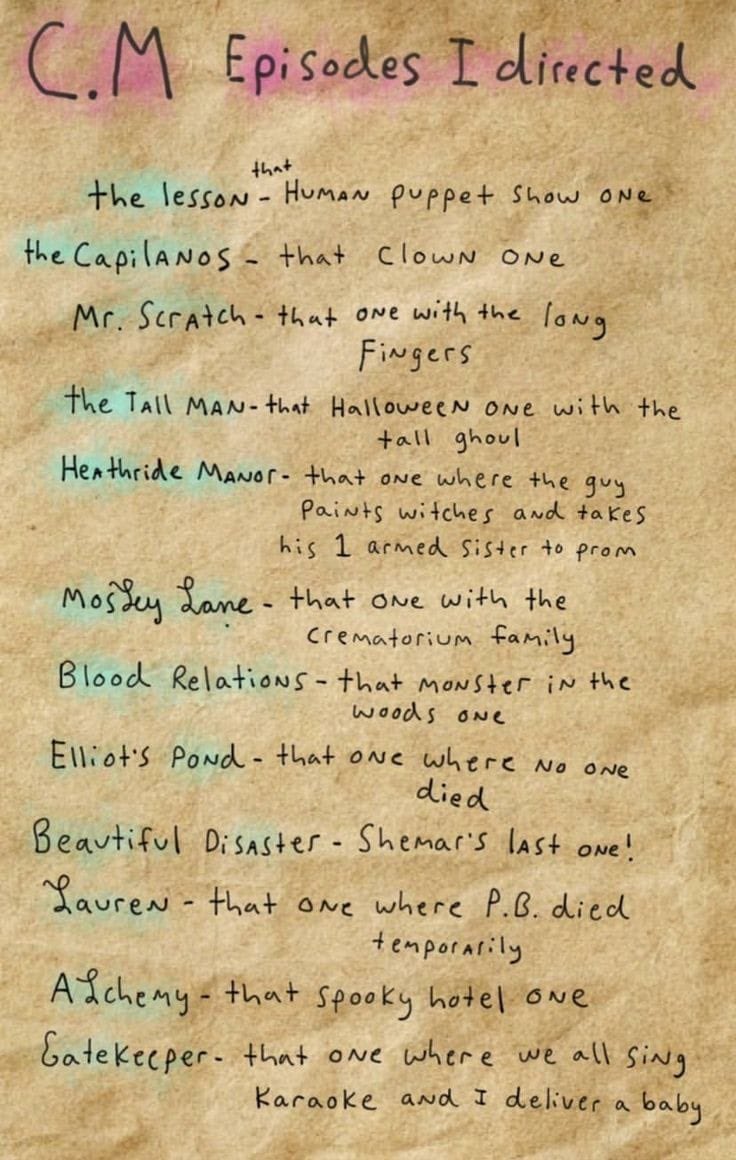 C.M Episodes I directed
that
the lesson - Human puppet show one
the Capilanos - that clown one
Mr. Scratch - that one with the long
Fingers
the Tall Man - that Halloween one with the
tall ghoul
Heathride Manor - that one where the guy
paints witches and takes
his 1 armed sister to prom
Mosley Lane - that one with the
crematorium family
Blood Relations - that monster in the
woods one
Elliot's Pond - that one where no one
died
Beautiful Disaster - Shemar's last one!
Lauren - that one where P.B. died
temporarily
Alchemy - that spooky hotel one
Gatekeeper - that one where we all sing
Karaoke and I deliver a baby